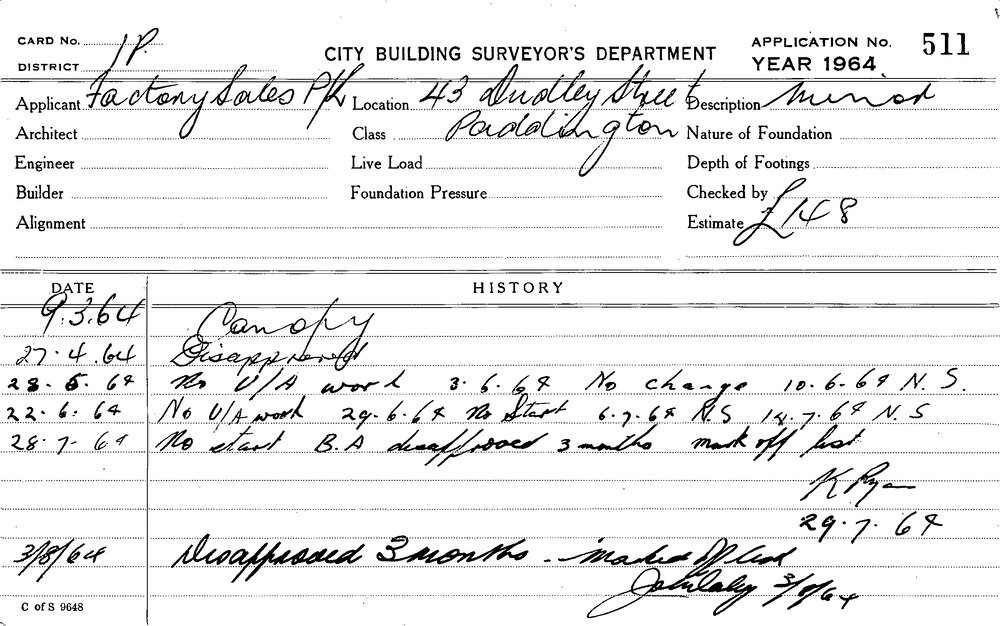 CARD No. 1P. CITY BUILDING SURVEYOR'S DEPARTMENT APPLICATION No. 511
DISTRICT YEAR 1964
Applicant Factory Sales P/L Location 43 Dudley Street Description Minor
Architect Class Paddington Nature of Foundation
Engineer Live Load Depth of Footings
Builder Foundation Pressure Checked by
Alignment Estimate £148
DATE HISTORY
9.3.64 Canopy
27.4.64 Disapproved
28.5.64 No U/A work 3.6.64 No change 10.6.64 N.S.
22.6.64 No U/A work 29.6.64 No Start 6.7.64 N.S 14.7.64 N.S
28.7.64 No start B.A disapproved 3 months mark off list
K Ryan
29.7.64
3/8/64 Disapproved 3 months. Marked Off List
3/8/64
C of S 9648